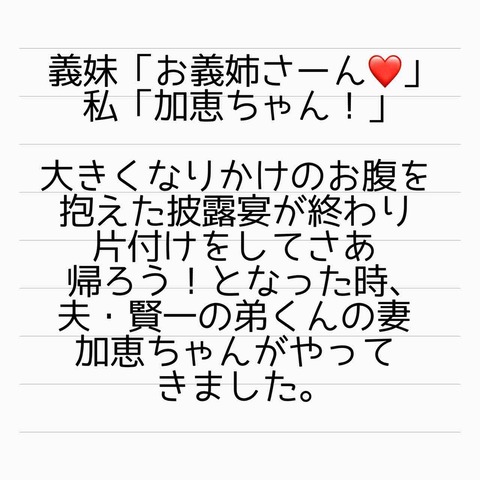 義妹「お義姉さーん❤️」
私「加恵ちゃん！」
大きくなりかけのお腹を
抱えた披露宴が終わり
片付けをしてさあ
帰ろう！となった時、
夫・賢一の弟くんの妻
加恵ちゃんがやって
きました。